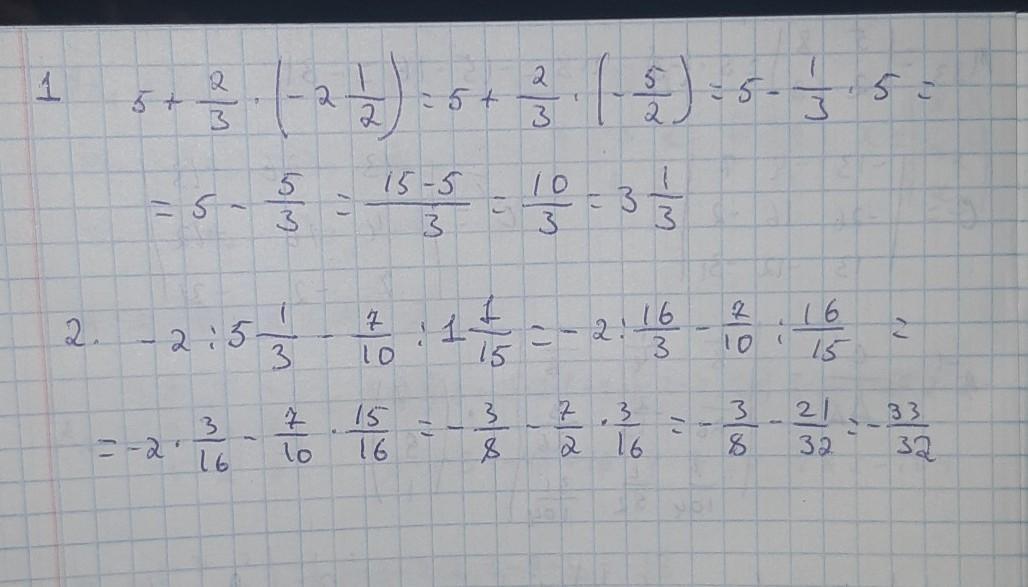 1 5 + 2/3 · (-2 1/2) = 5 + 2/3 · (-5/2) = 5 - 1/3 · 5 =
= 5 - 5/3 = (15-5)/3 = 10/3 = 3 1/3
2. - 2 : 5 1/3 - 7/10 : 1 1/15 = - 2 : 16/3 - 7/10 : 16/15 =
= -2 · 3/16 - 7/10 · 15/16 = - 3/8 - 7/2 · 3/16 = - 3/8 - 21/32 = - 33/32